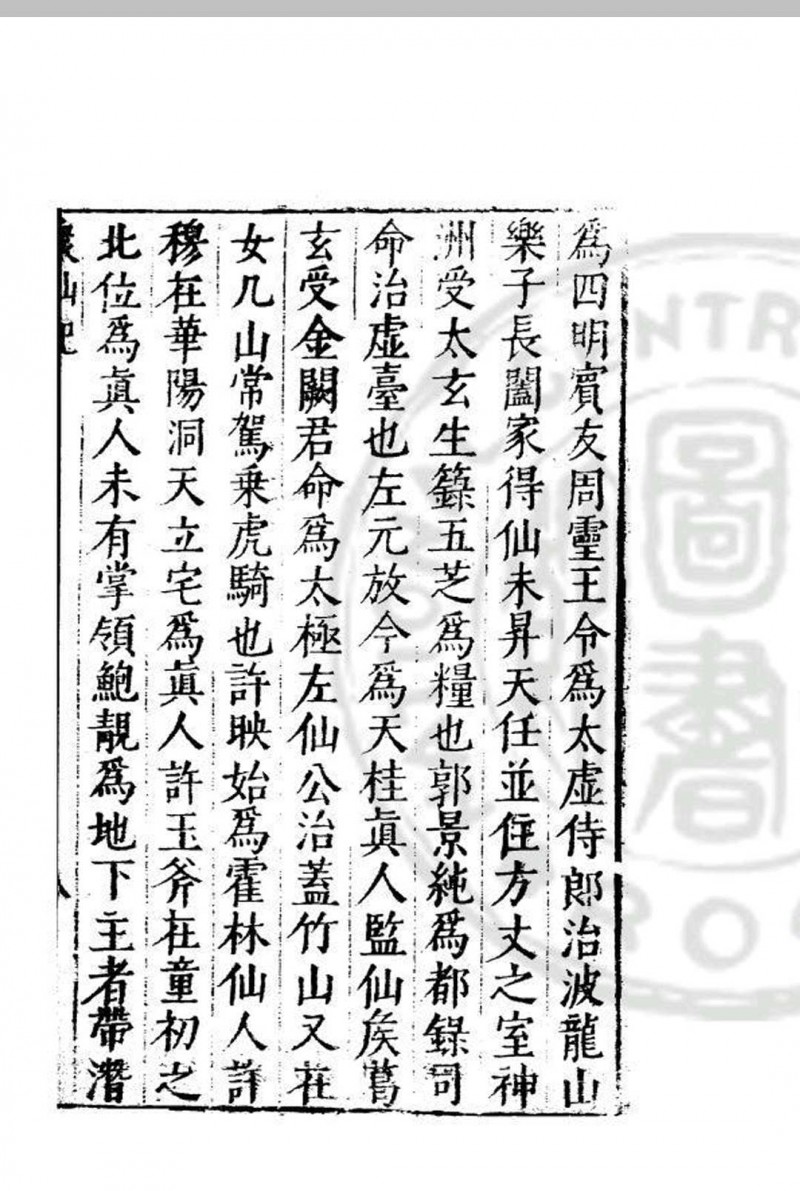 為四明賓友周靈王令為太虛侍郎治波龍山
樂子長闔家得仙未昇天任並住方丈之室神
洲受太玄生籙五芝為糧也郭景純為都錄司
命治虛臺也左元放今為天柱真人監仙矦葛
玄受金闕君命為太極左仙公治蓋竹山又在
女几山常駕乘虎騎也許映始為霍林仙人許
穆在華陽洞天立宅為真人許玉斧在童初之
北位為真人未有掌領鮑靚為地下主者帶潛
八
圖書